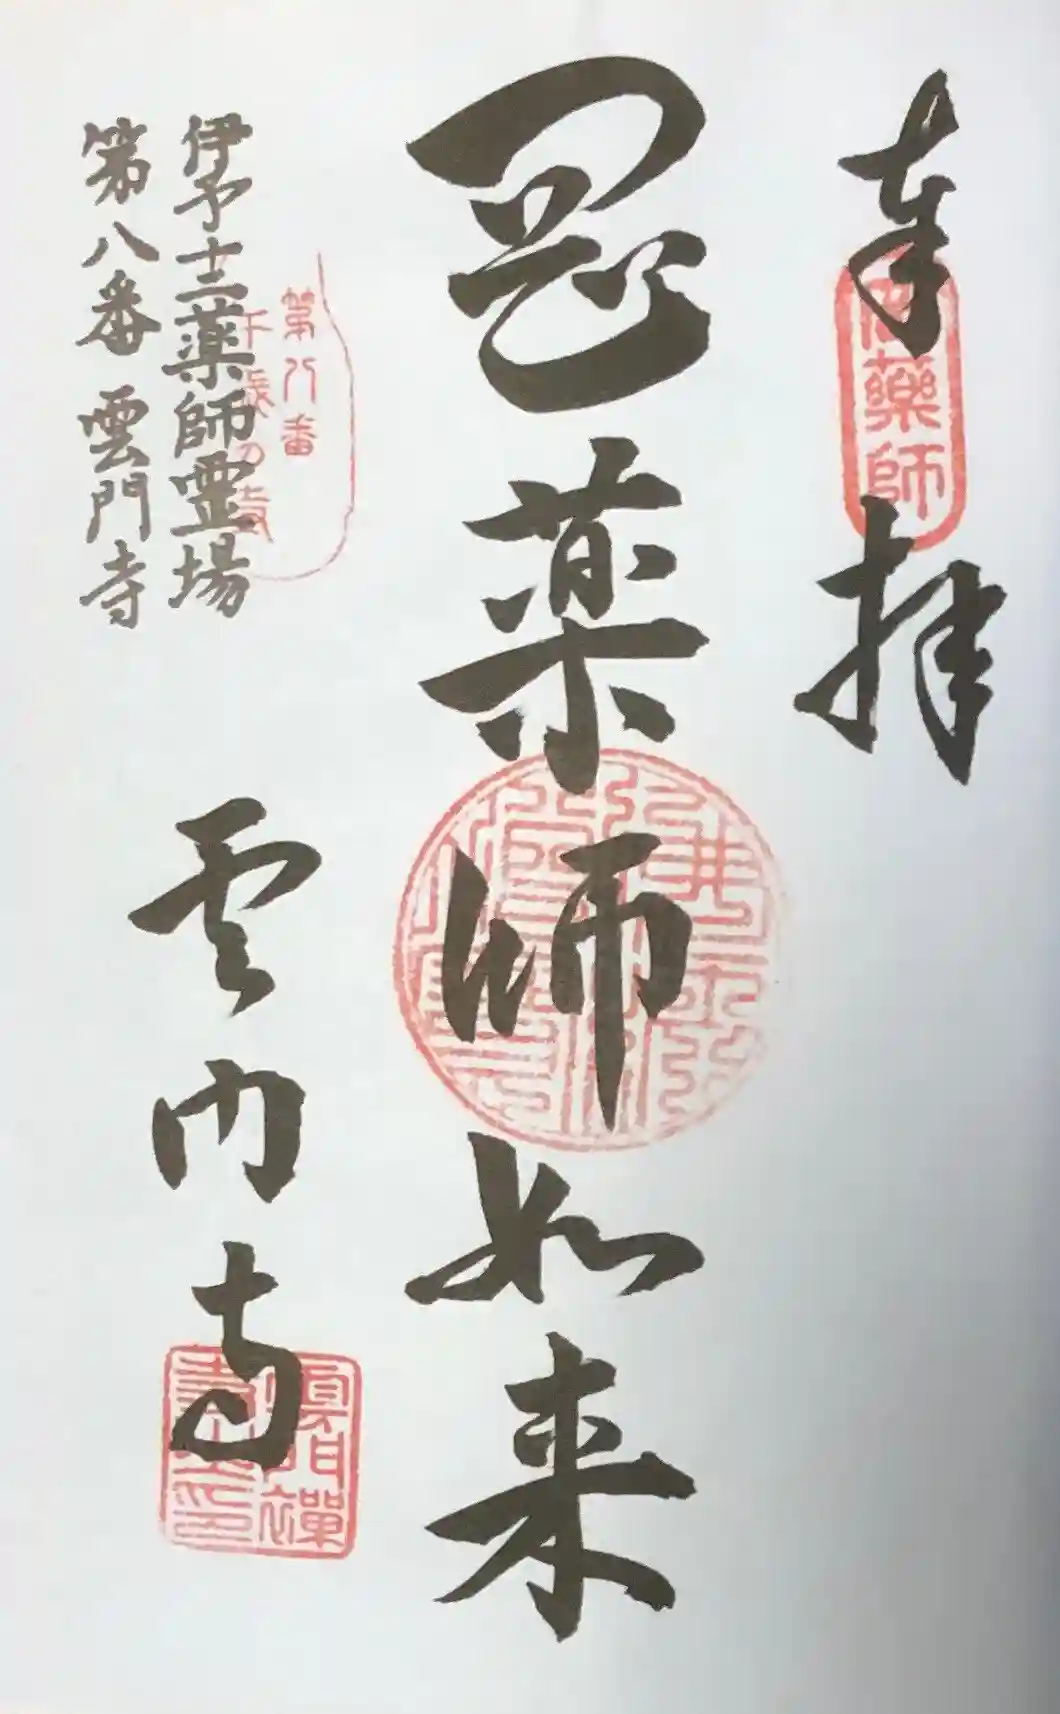 奉拝
薬師
薬師如来
第八番
伊予十二薬師霊場
第八番 雲門寺
雲门寺
雲門禅